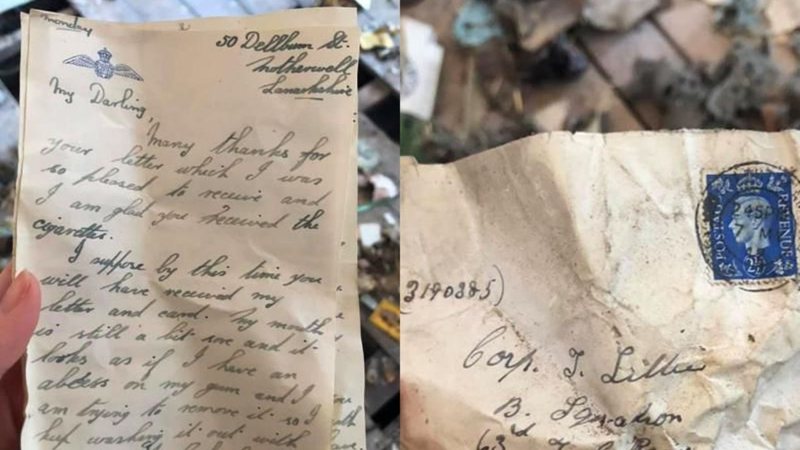 Monday
50 Dellburn St.
Motherwell
Lanarkshire
My Darling,
Many thanks for
your letter which I was
so pleased to receive and
I am glad you received the
cigarettes.
I suppose by this time you
will have received my
letter and card. My mouth
is still a bit sore and it
looks as if I have an
abcess on my gum and I
am trying to remove it so I
keep washing it out with
POSTAGE
REVENUE
3190385)
Corp. T. Lillie
B. Sqnadron
63rd